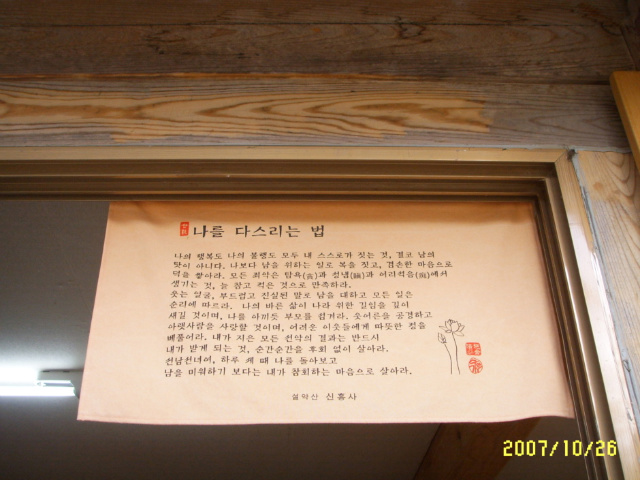 나를 다스리는 법
나의 행복도 나의 불행도 모두 내 스스로가 짓는 것, 결코 남의
탓이 아니다. 나보다 남을 위하는 일로 복을 짓고, 겸손한 마음으로
덕을 쌓아라. 모든 죄악은 탐욕(貪)과 성냄(瞋)과 어리석음(痴)에서
생기는 것, 늘 참고 적은 것으로 만족하라.
웃는 얼굴, 부드럽고 진실된 말로 남을 대하고 모든 일은
순리에 따르라. 나의 바른 삶이 나라 위한 길임을 깊이
새길 것이며, 나를 아끼듯 부모를 섬겨라. 웃어른을 공경하고
아랫사람을 사랑할 것이며, 어려운 이웃들에게 따뜻한 정을
베풀어라. 내가 지은 모든 선악의 결과는 반드시
내가 받게 되는 것, 순간순간을 후회 없이 살아라.
하루 세 때 나를 돌아보고
남을 미워하기 보다는 내가 참회하는 마음으로 살아라.
설악산 신흥사
2007/10/26